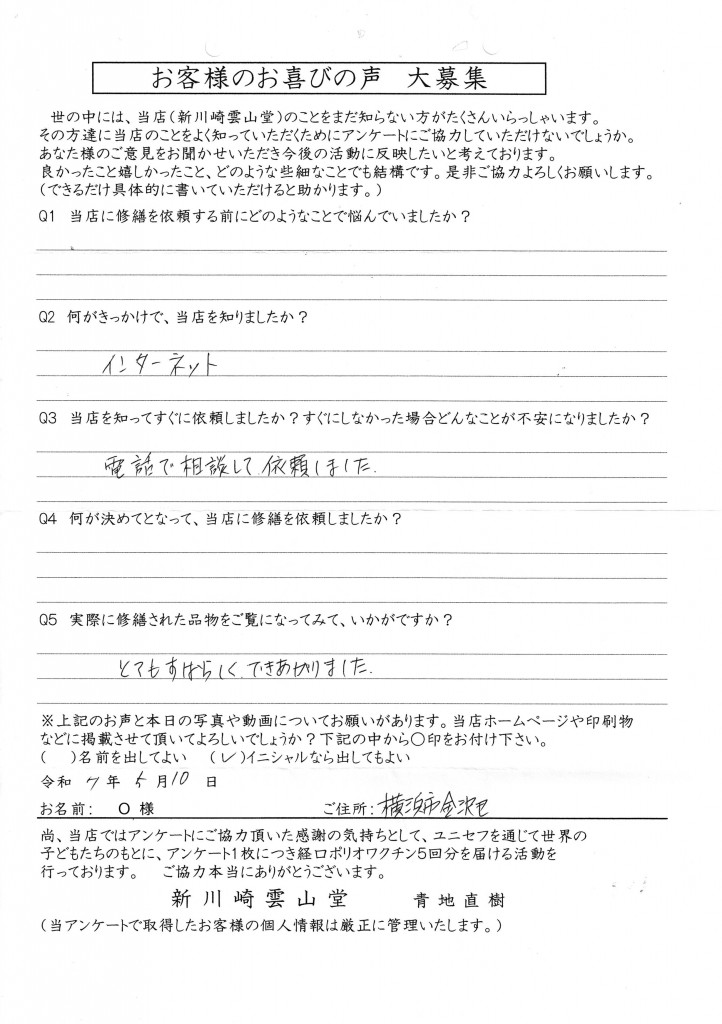 お客様のお喜びの声 大募集
世の中には、当店(新川崎雲山堂)のことをまだ知らない方がたくさんいらっしゃいます。
その方達に当店のことをよく知っていただくためにアンケートにご協力していただけないでしょうか。
あなた様のご意見をお聞かせいただき今後の活動に反映したいと考えております。
良かったこと嬉しかったこと、どのような些細なことでも結構です。是非ご協力よろしくお願いします。
(できるだけ具体的に書いていただけると助かります。)
Q1 当店に修繕を依頼する前にどのようなことで悩んでいましたか?
Q2 何がきっかけで、当店を知りましたか?
インターネット
Q3 当店を知ってすぐに依頼しましたか?すぐにしなかった場合どんなことが不安になりましたか?
電話で相談して依頼しました.
Q4 何が決めてとなって、当店に修繕を依頼しましたか?
Q5 実際に修繕された品物をご覧になってみて、いかがですか?
とてもすばらしくできあがりました.
※上記のお声と本日の写真や動画についてお願いがあります。当店ホームページや印刷物
などに掲載させて頂いてよろしいでしょうか?下記の中から〇印をお付け下さい。
( )名前を出してよい (✓)イニシャルなら出してもよい
令和 7 年 5 月 10 日
お名前: O 様 ご住所: 横浜市金沢区
尚、当店ではアンケートにご協力頂いた感謝の気持ちとして、ユニセフを通じて世界の
子どもたちのもとに、アンケート1枚につき経口ポリオワクチン5回分を届ける活動を
行っております。 ご協力本当にありがとうございます。
新川崎雲山堂 青地直樹
(当アンケートで取得したお客様の個人情報は厳正に管理いたします。)